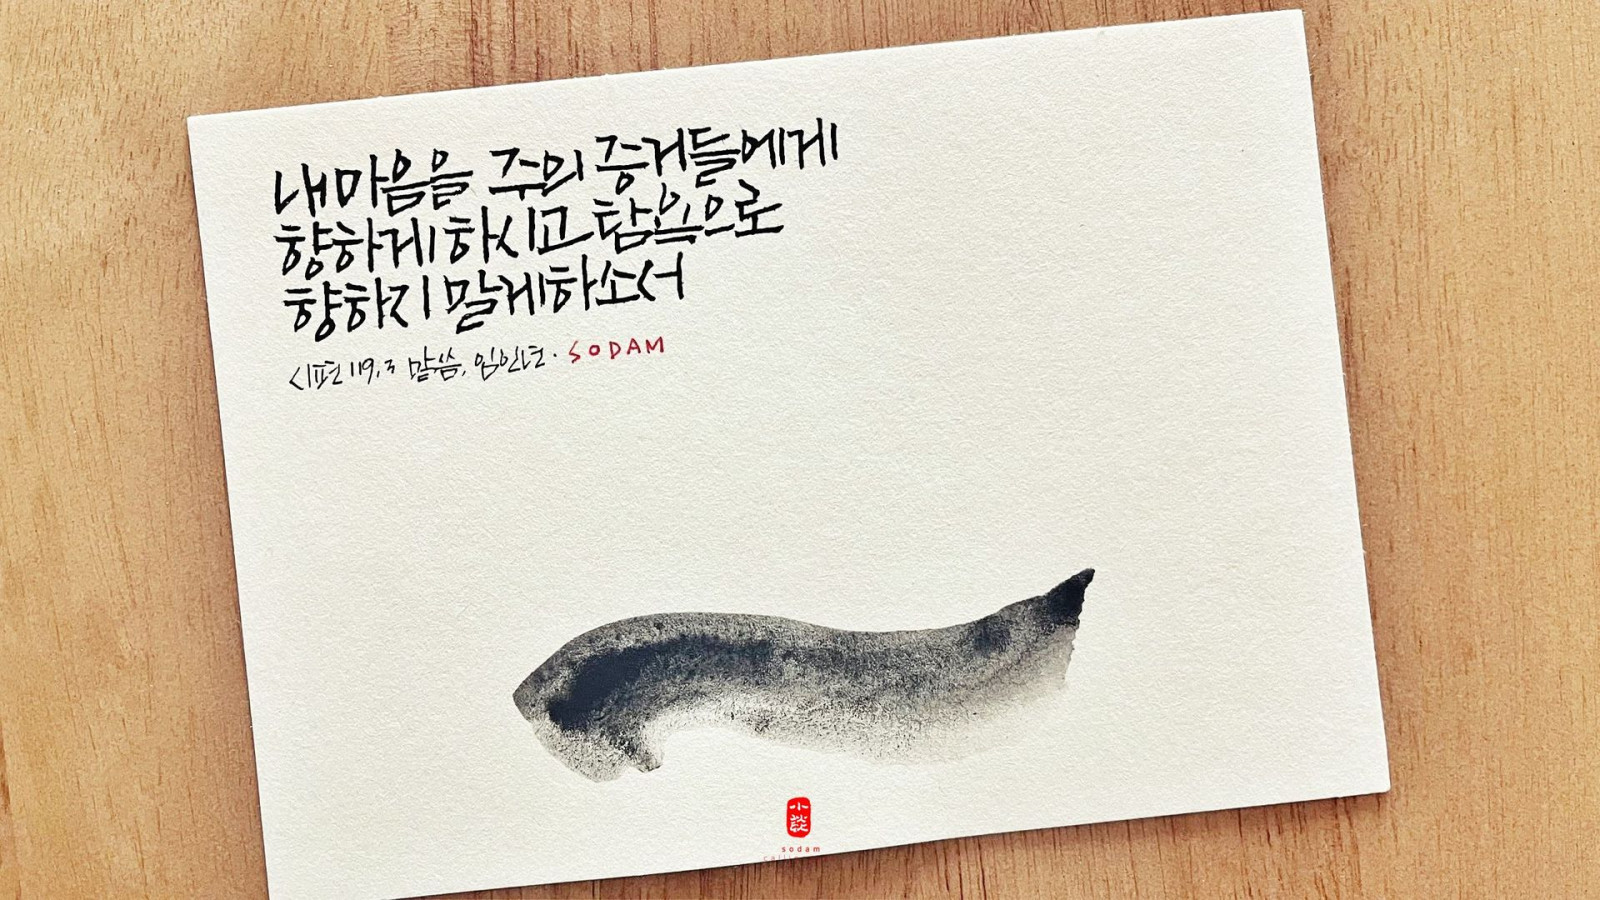 내 마음을 주의 증거들에게
향하게 하시고 탐욕으로
향하지 말게 하소서
시편 119.3 말씀. 임인년 · SODAM
小談
sodam